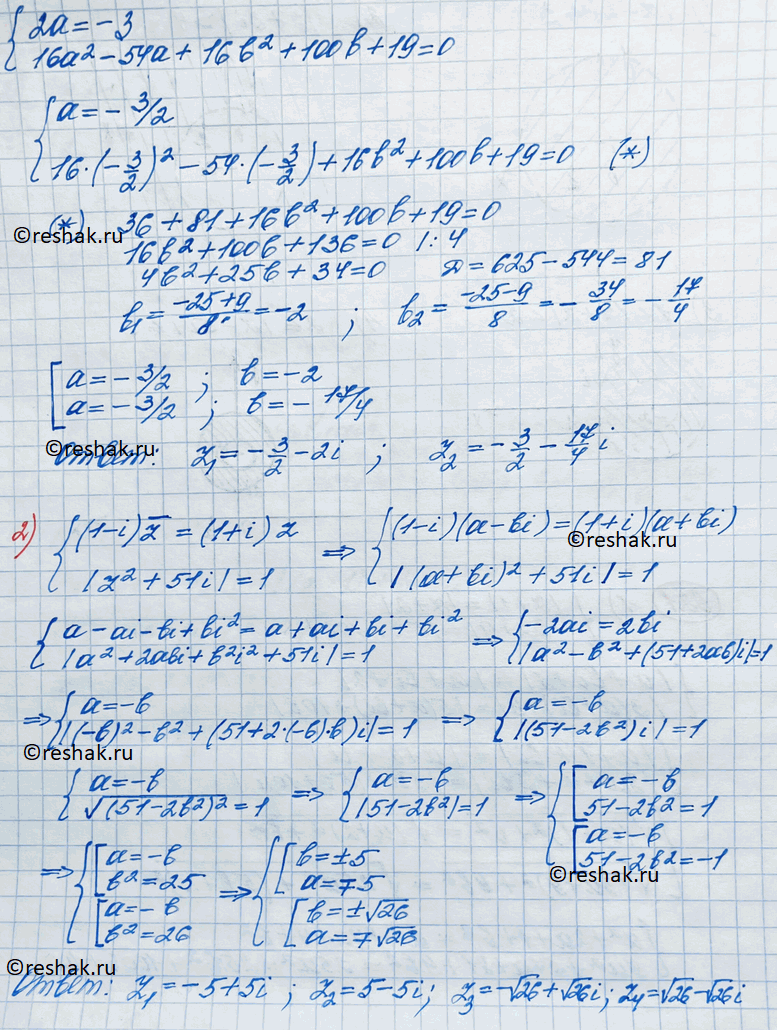 {2a=-3
16a²-54a+16b²+100b+19=0
{a=-3/2
16·(-3/2)²-54·(-3/2)+16b²+100b+19=0 (*)
(*) 36+81+16b²+100b+19=0
©reshak.ru
16b²+100b+136=0 |:4
4b²+25b+34=0 D=625-544=81
b₁=(-25+9)/8=-2 ; b₂=(-25-9)/8=-34/8=-17/4
[a=-3/2 ; b=-2
a=-3/2 ; b=-17/4
©reshak.ru
Ответ: z₁=-3/2-2i ; z₂=-3/2-17/4 i
2) {(1-i)z̅=(1+i)z ⇒ {(1-i)(a-bi)=(1+i)(a+bi)
©reshak.ru
|z²+51i|=1 |(a+bi)²+51i|=1
{a-ai-bi+bi²=a+ai+bi+bi² ⇒ {-2ai=2bi
|a²+2abi+b²i²+51i|=1 |a²-b²+(51+2ab)i|=1
⇒ {a=-b ⇒ {a=-b
|(-b)²-b²+(51+2·(-b)·b)i|=1 |(51-2b²)i|=1
©reshak.ru
{a=-b ⇒ {a=-b ⇒ {[a=-b
√(51-2b²)²=1 |51-2b²|=1 51-2b²=1
[a=-b
51-2b²=-1
©reshak.ru
⇒ {[a=-b ⇒ {[b=±5
b²=25 a=∓5
[a=-b [b=±√26
b²=26 a=∓√26
©reshak.ru
Ответ: z₁=-5+5i ; z₂=5-5i ; z₃=-√26+√26i ; z₄=√26-√26i